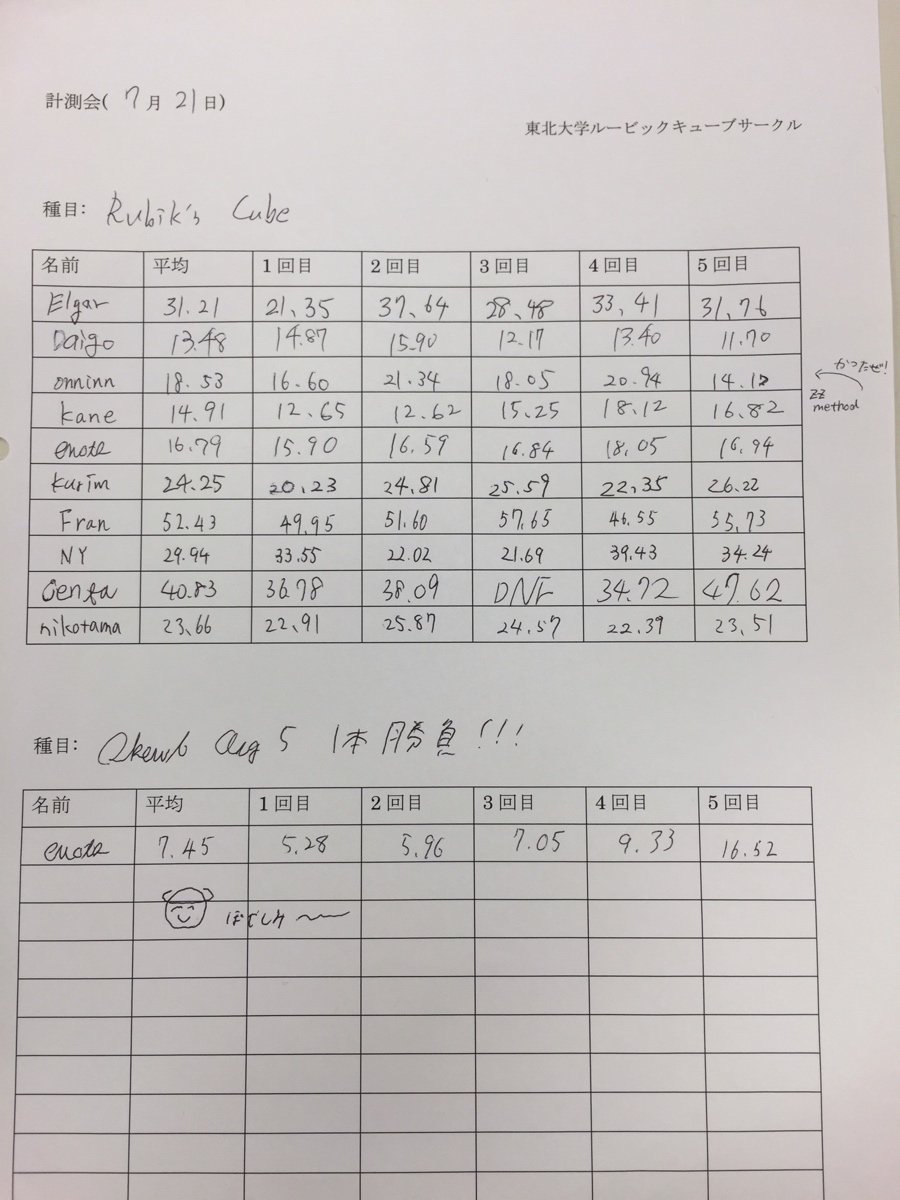 計測会( 7月 21日)
東北大学ルービックキューブサークル
種目: Rubik's Cube
名前 平均 1回目 2回目 3回目 4回目 5回目
Elgar 31.21 21.35 37.64 28.48 33.41 31.76
Daigo 13.48 14.87 15.90 12.17 13.40 11.70
onninn 18.53 16.60 21.34 18.05 20.94 14.12
かったぜ!
ZZ
method
kane 14.91 12.65 12.62 15.25 18.12 16.82
enota 16.79 15.90 16.59 16.84 18.05 16.94
kurim 24.25 20.23 24.81 25.59 22.35 26.22
Fran 52.43 49.95 51.60 57.65 46.55 55.73
NY 29.94 33.55 22.02 21.69 39.43 34.24
Genta 40.83 36.78 38.09 DNF 34.72 47.62
nikotama 23.66 22.91 25.87 24.57 22.39 23.51
種目: Skewb avg 5 1本勝負!!!
名前 平均 1回目 2回目 3回目 4回目 5回目
enota 7.45 5.28 5.96 7.05 9.33 16.52